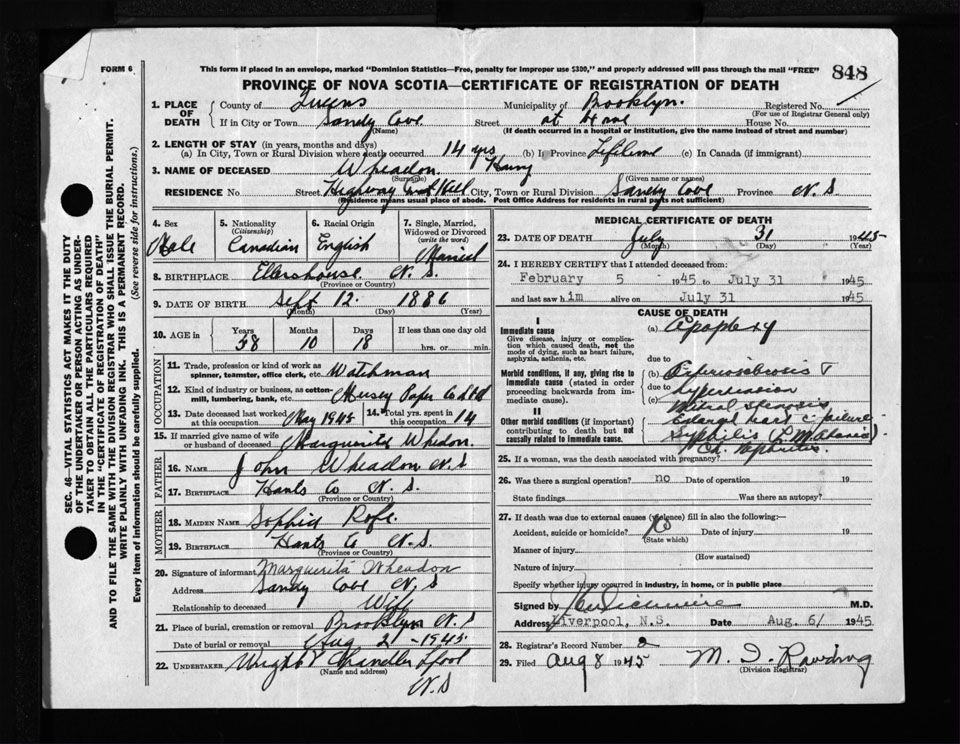 FORM 6
This form if placed in an envelope, marked "Dominion Statistics—Free, penalty for improper use $300," and properly addressed will pass through the mail "FREE"
848
PROVINCE OF NOVA SCOTIA—CERTIFICATE OF REGISTRATION OF DEATH
SEC. 46—VITAL STATISTICS ACT MAKES IT THE DUTY
OF THE UNDERTAKER OR PERSON ACTING AS UNDER-
TAKER TO OBTAIN ALL THE PARTICULARS REQUIRED
IN THE "CERTIFICATE OF REGISTRATION OF DEATH"
AND TO FILE THE SAME WITH THE DIVISION REGISTRAR WHO SHALL ISSUE THE BURIAL PERMIT.
WRITE PLAINLY WITH UNFADING INK. THIS IS A PERMANENT RECORD.
Every item of information should be carefully supplied. (See reverse side for instructions.)
1. PLACE OF DEATH County of Queens Municipality of Brooklyn. Registered No.
(For use of Registrar General only)
If in City or Town Sandy Cove Street at Home House No.
(Name) (If death occurred in a hospital or institution, give the name instead of street and number)
2. LENGTH OF STAY (in years, months and days)
(a) In City, Town or Rural Division where death occurred 14 yrs (b) In Province Lifetime (c) In Canada (if immigrant)
3. NAME OF DECEASED Wheadon. Harry
(Surname) (Given name or names)
RESIDENCE No Street Highway City, Town or Rural Division Sandy Cove Province N.S
(Residence means usual place of abode. Post Office Address for residents in rural parts not sufficient)
4. Sex Male
5. Nationality (Citizenship) Canadian
6. Racial Origin English
7. Single, Married, Widowed or Divorced (write the word) Married
8. BIRTHPLACE Ellershouse N.S.
(Province or Country)
9. DATE OF BIRTH Sept 12. 1886
(Month) (Day) (Year)
10. AGE in Years 58 Months 10 Days 18 If less than one day old hrs. or min.
OCCUPATION
11. Trade, profession or kind of work as spinner, teamster, office clerk, etc. Watchman
12. Kind of industry or business, as cotton-mill, lumbering, bank, etc. Mersey Paper Co Ltd
13. Date deceased last worked at this occupation May 1945 14. Total yrs. spent in this occupation 14
15. If married give name of wife or husband of deceased Marguerite Wheadon.
FATHER
16. NAME John Wheadon N.S
17. BIRTHPLACE Hants Co N.S.
(Province or Country)
MOTHER
18. MAIDEN NAME Sophia Rofe.
19. BIRTHPLACE Hants Co N.S.
(Province or Country)
20. Signature of informant Marguerita Wheadon
Address Sandy Cove N.S
Relationship to deceased Wife
21. Place of burial, cremation or removal Brooklyn N.S
Date of burial or removal Aug 2 - 1945
22. UNDERTAKER Wright Chandler L'pool
(Name and address)
N.S
MEDICAL CERTIFICATE OF DEATH
23. DATE OF DEATH July 31 1945
(Month) (Day) (Year)
24. I HEREBY CERTIFY that I attended deceased from:
February 5 1945 to July 31 1945
and last saw him alive on July 31 1945
CAUSE OF DEATH
I
Immediate cause
Give disease, injury or complication which caused death, not the mode of dying, such as heart failure, asphyxia, asthenia, etc.
(a) Apoplexy
due to
Morbid conditions, if any, giving rise to immediate cause (stated in order proceeding backwards from immediate cause).
(b) Arteriosclerosis
due to
(c) hypertension
II
Other morbid conditions (if important) contributing to death but not causally related to immediate cause.
Mitral stenosis
Enlarged heart c failure
Syphilis
Nephritis
25. If a woman, was the death associated with pregnancy?
26. Was there a surgical operation? no Date of operation 19
State findings Was there an autopsy?
27. If death was due to external causes (violence) fill in also the following:—
Accident, suicide or homicide? No Date of injury 19
(State which)
Manner of injury
(How sustained)
Nature of injury
Specify whether injury occurred in industry, in home, or in public place
Signed by M.D.
Address Liverpool, N.S. Date Aug. 6/ 1945
28. Registrar's Record Number 2
29. Filed Aug 8 1945 M. I. Rawding
(Division Registrar)